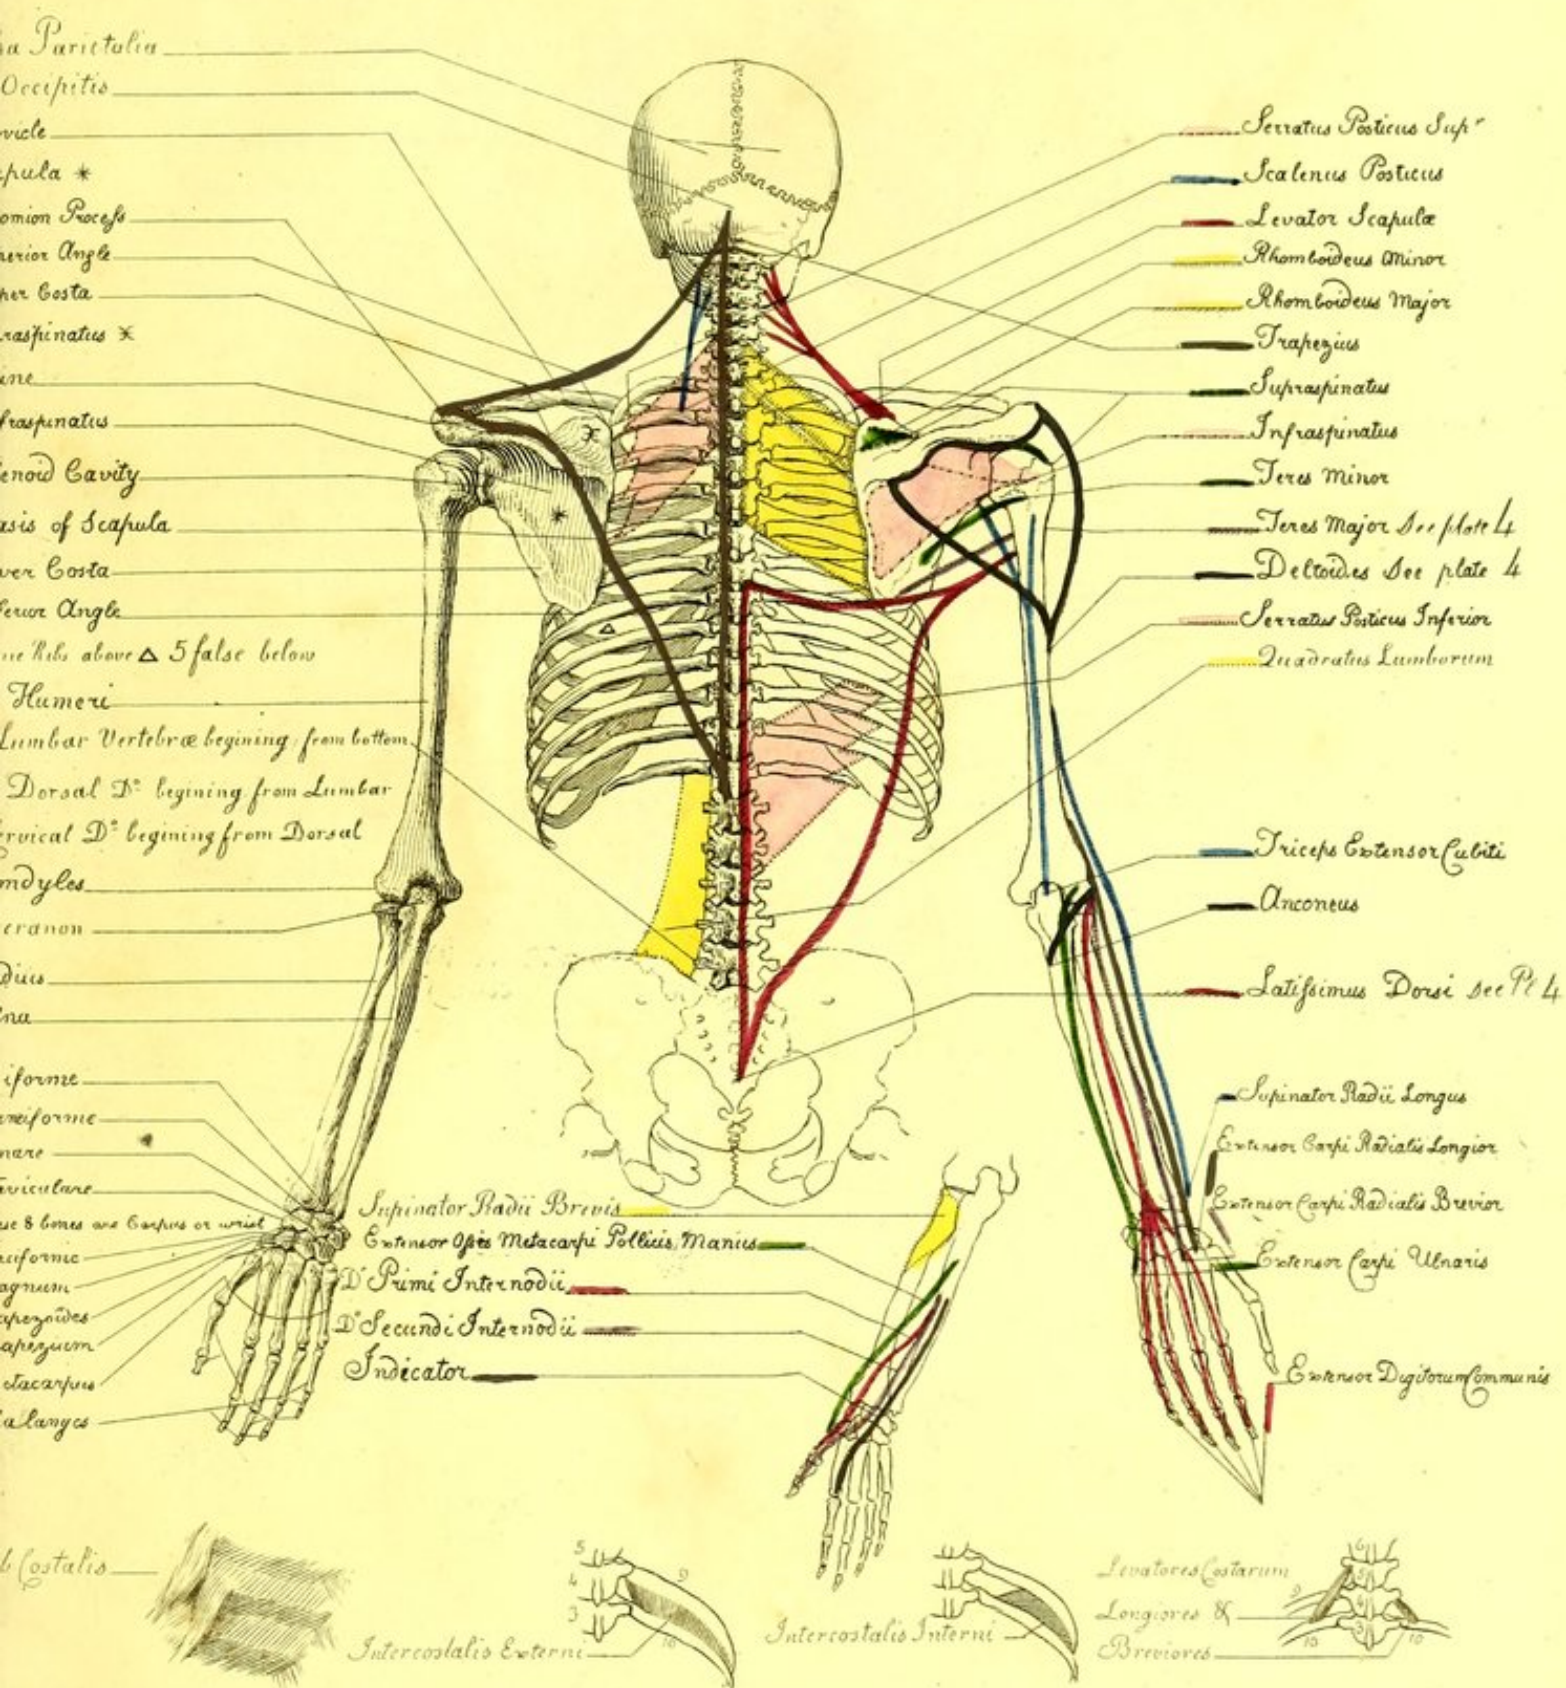 sa Parietalia
Occipitis
vicle
pula *
omion Process
perior Angle
per Costa
raspinatus *
ine
fraspinatus
enoid Cavity
asis of Scapula
wer Costa
ferior Angle
ue Ribs above △ 5 false below
Humeri
Lumbar Vertebræ begining from bottom
Dorsal Do begining from Lumbar
ervical Do begining from Dorsal
ondyles
ecranon
dius
lna
iforme
neiforme
nare
aviculare
se 8 bones are Carpus or wrist
ciforme
agnum
apezoides
apezium
etacarpus
alanges
Serratus Posticus Supr
Scalenus Posticus
Levator Scapulæ
Rhomboideus Minor
Rhomboideus Major
Trapezius
Supraspinatus
Infraspinatus
Teres Minor
Teres Major See plate 4
Deltoides See plate 4
Serratus Posticus Inferior
Quadratus Lumborum
Triceps Extensor Cubiti
Anconeus
Latissimus Dorsi see Pl 4
Supinator Radii Longus
Extensor Carpi Radialis Longior
Extensor Carpi Radialis Brevior
Extensor Carpi Ulnaris
Extensor Digitorum Communis
Supinator Radii Brevis
Extensor Ossis Metacarpi Pollicis Manus
Do Primi Internodii
Do Secundi Internodii
Indicator
b Costalis
5
4
3
9
10
Intercostalis Externi
Intercostalis Interni
Levatores Costarum
Longiores &
Breviores
6
5
4
3
9
10
10